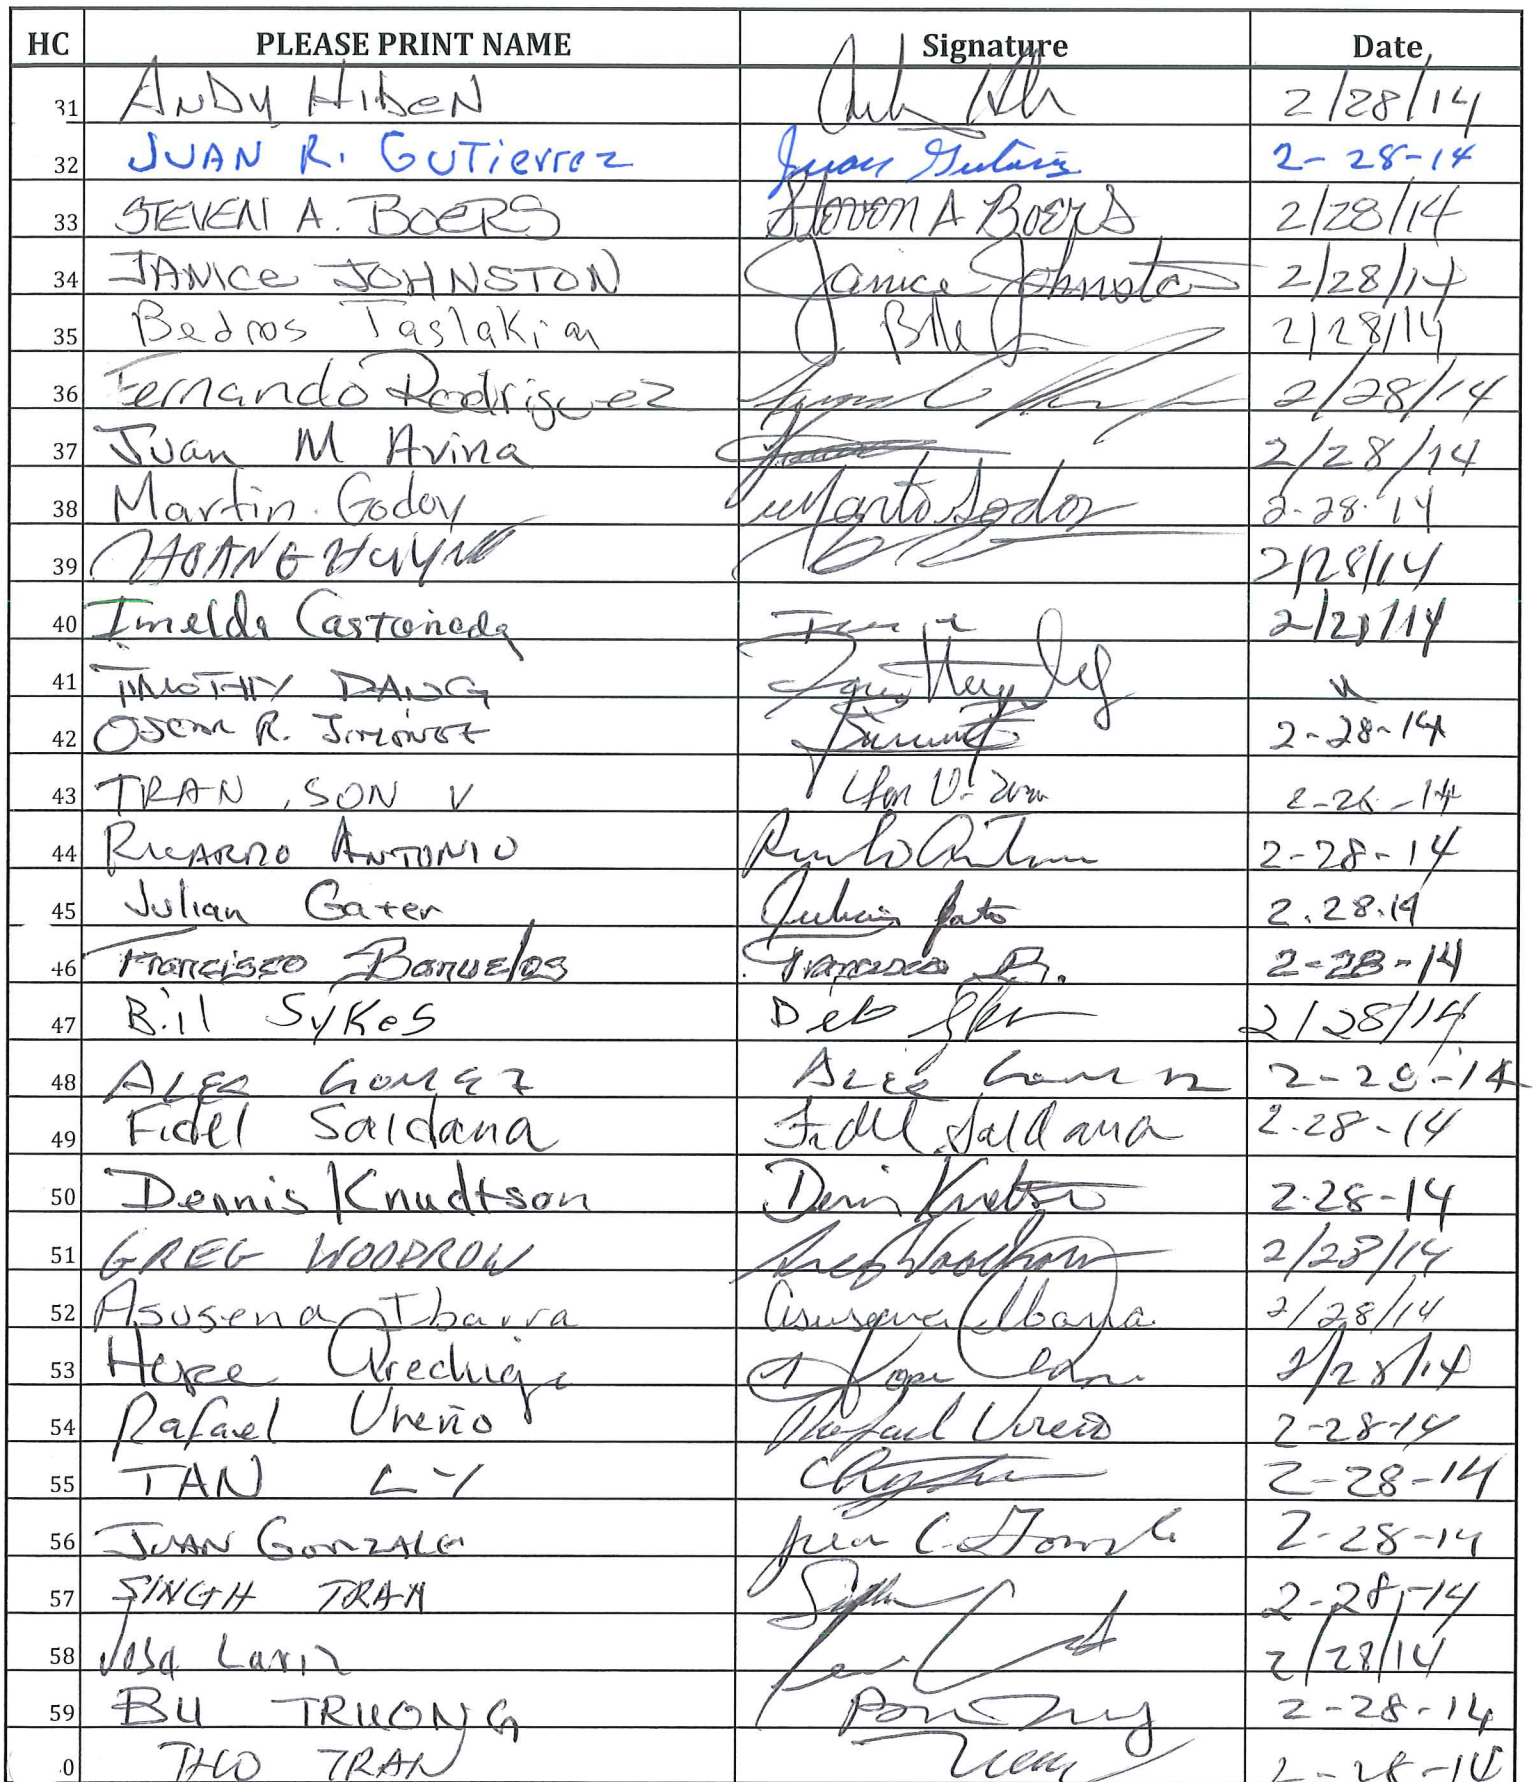 HC PLEASE PRINT NAME Signature Date
31 ANDY HIBEN 2/28/14
32 JUAN R. GUTierrez Juan 2-28-14
33 STEVEN A. BOERS Steven A Boers 2/28/14
34 JANICE JOHNSTON Janice Johnston 2/28/14
35 Bedros Taslakian 2/28/14
36 Fernando Rodriguez 2/28/14
37 Juan M Avina 2/28/14
38 Martin Godoy 2-28-14
39 HOANG HUYNH 2/28/14
40 Imelda Castañeda 2/28/14
41 TIMOTHY DANG "
42 Oscar R. Jimenez 2-28-14
43 TRAN, SON V 2-26-14
44 RICARDO ANTONIO 2-28-14
45 Julian Gater 2.28.14
46 Francisco Banuelos Francisco B. 2-28-14
47 Bill SyKes 2/28/14
48 ALEC GOMEZ 2-28-14
49 Fidel Saldana Fidel Saldana 2-28-14
50 Dennis Knudtson 2-28-14
51 GREG WOODROW Greg Woodrow 2/28/14
52 Asusena Ibarra Asusena Ibarra 2/28/14
53 Arechiga 2/28/14
54 Rafael Ureño Rafael Ureño 2-28-14
55 TAN LY 2-28-14
56 JUAN GONZALEZ Juan C. 2-28-14
57 SINGH TRAN 2-28-14
58 Lariz 2/28/14
59 BU TRUONG 2-28-14
0 THO TRAN 2-28-14